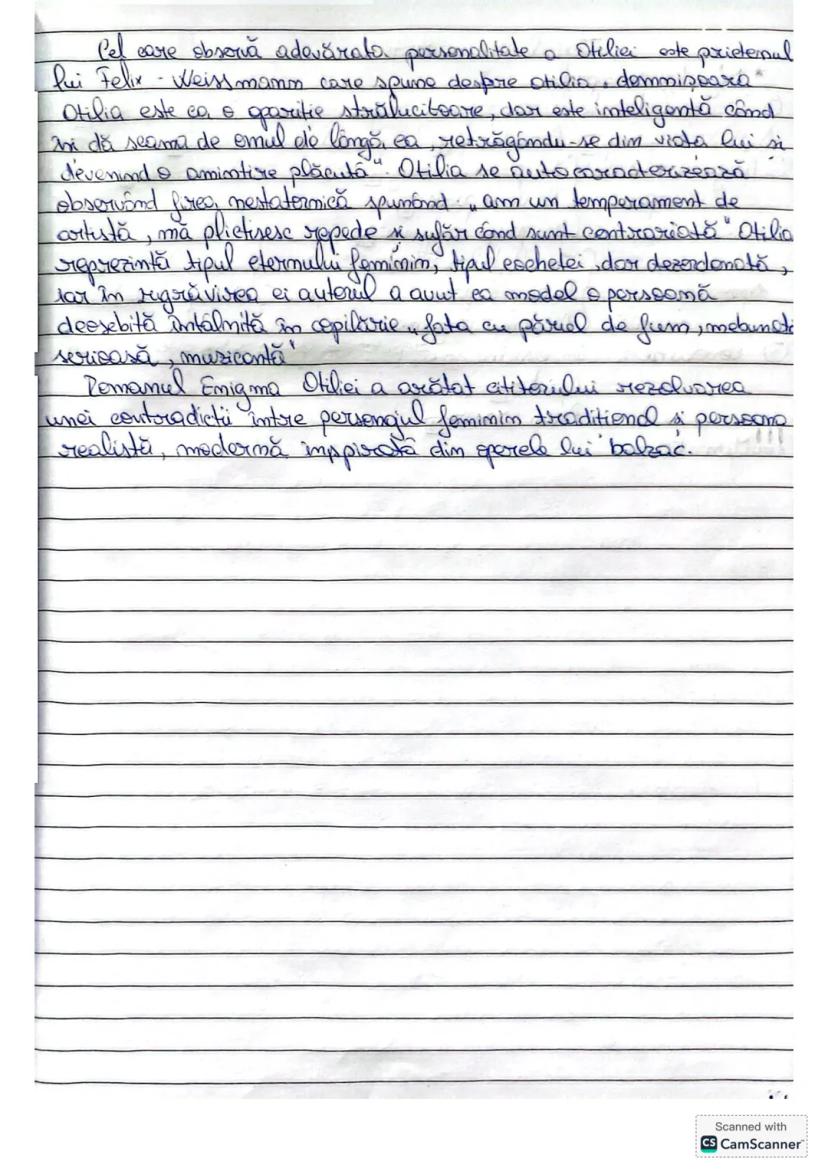 Cel care observă adevărata personalitate a Otiliei este prietenul
lui Felix - Weissmann care spune despre Otilia „domnişoara
Otilia este ca o apariție strălucitoare, dar este inteligentă când
își dă seama de omul de lângă ea, retrăgându-se din viața lui și
devenind o amintire plăcută". Otilia se autocaracterizează
observând firea nestatornică spunând „am un temperament de
artistă, mă plictisesc repede și sufăr când sunt contrariată" Otilia
reprezintă tipul eternului feminin, tipul cochetei, dar dezordonată,
iar în autorul a avut ca model o persoană
deosebită întâlnită în copilărie „fata cu părul de fum,
serioasă, muzicantă"
Romanul Enigma Otiliei a arătat cititorului rezolvarea
unei contradicții între personajul feminin tradițional și persoana
realistă, modernă inspirată din operele lui balzac.
Scanned with
CS CamScanner